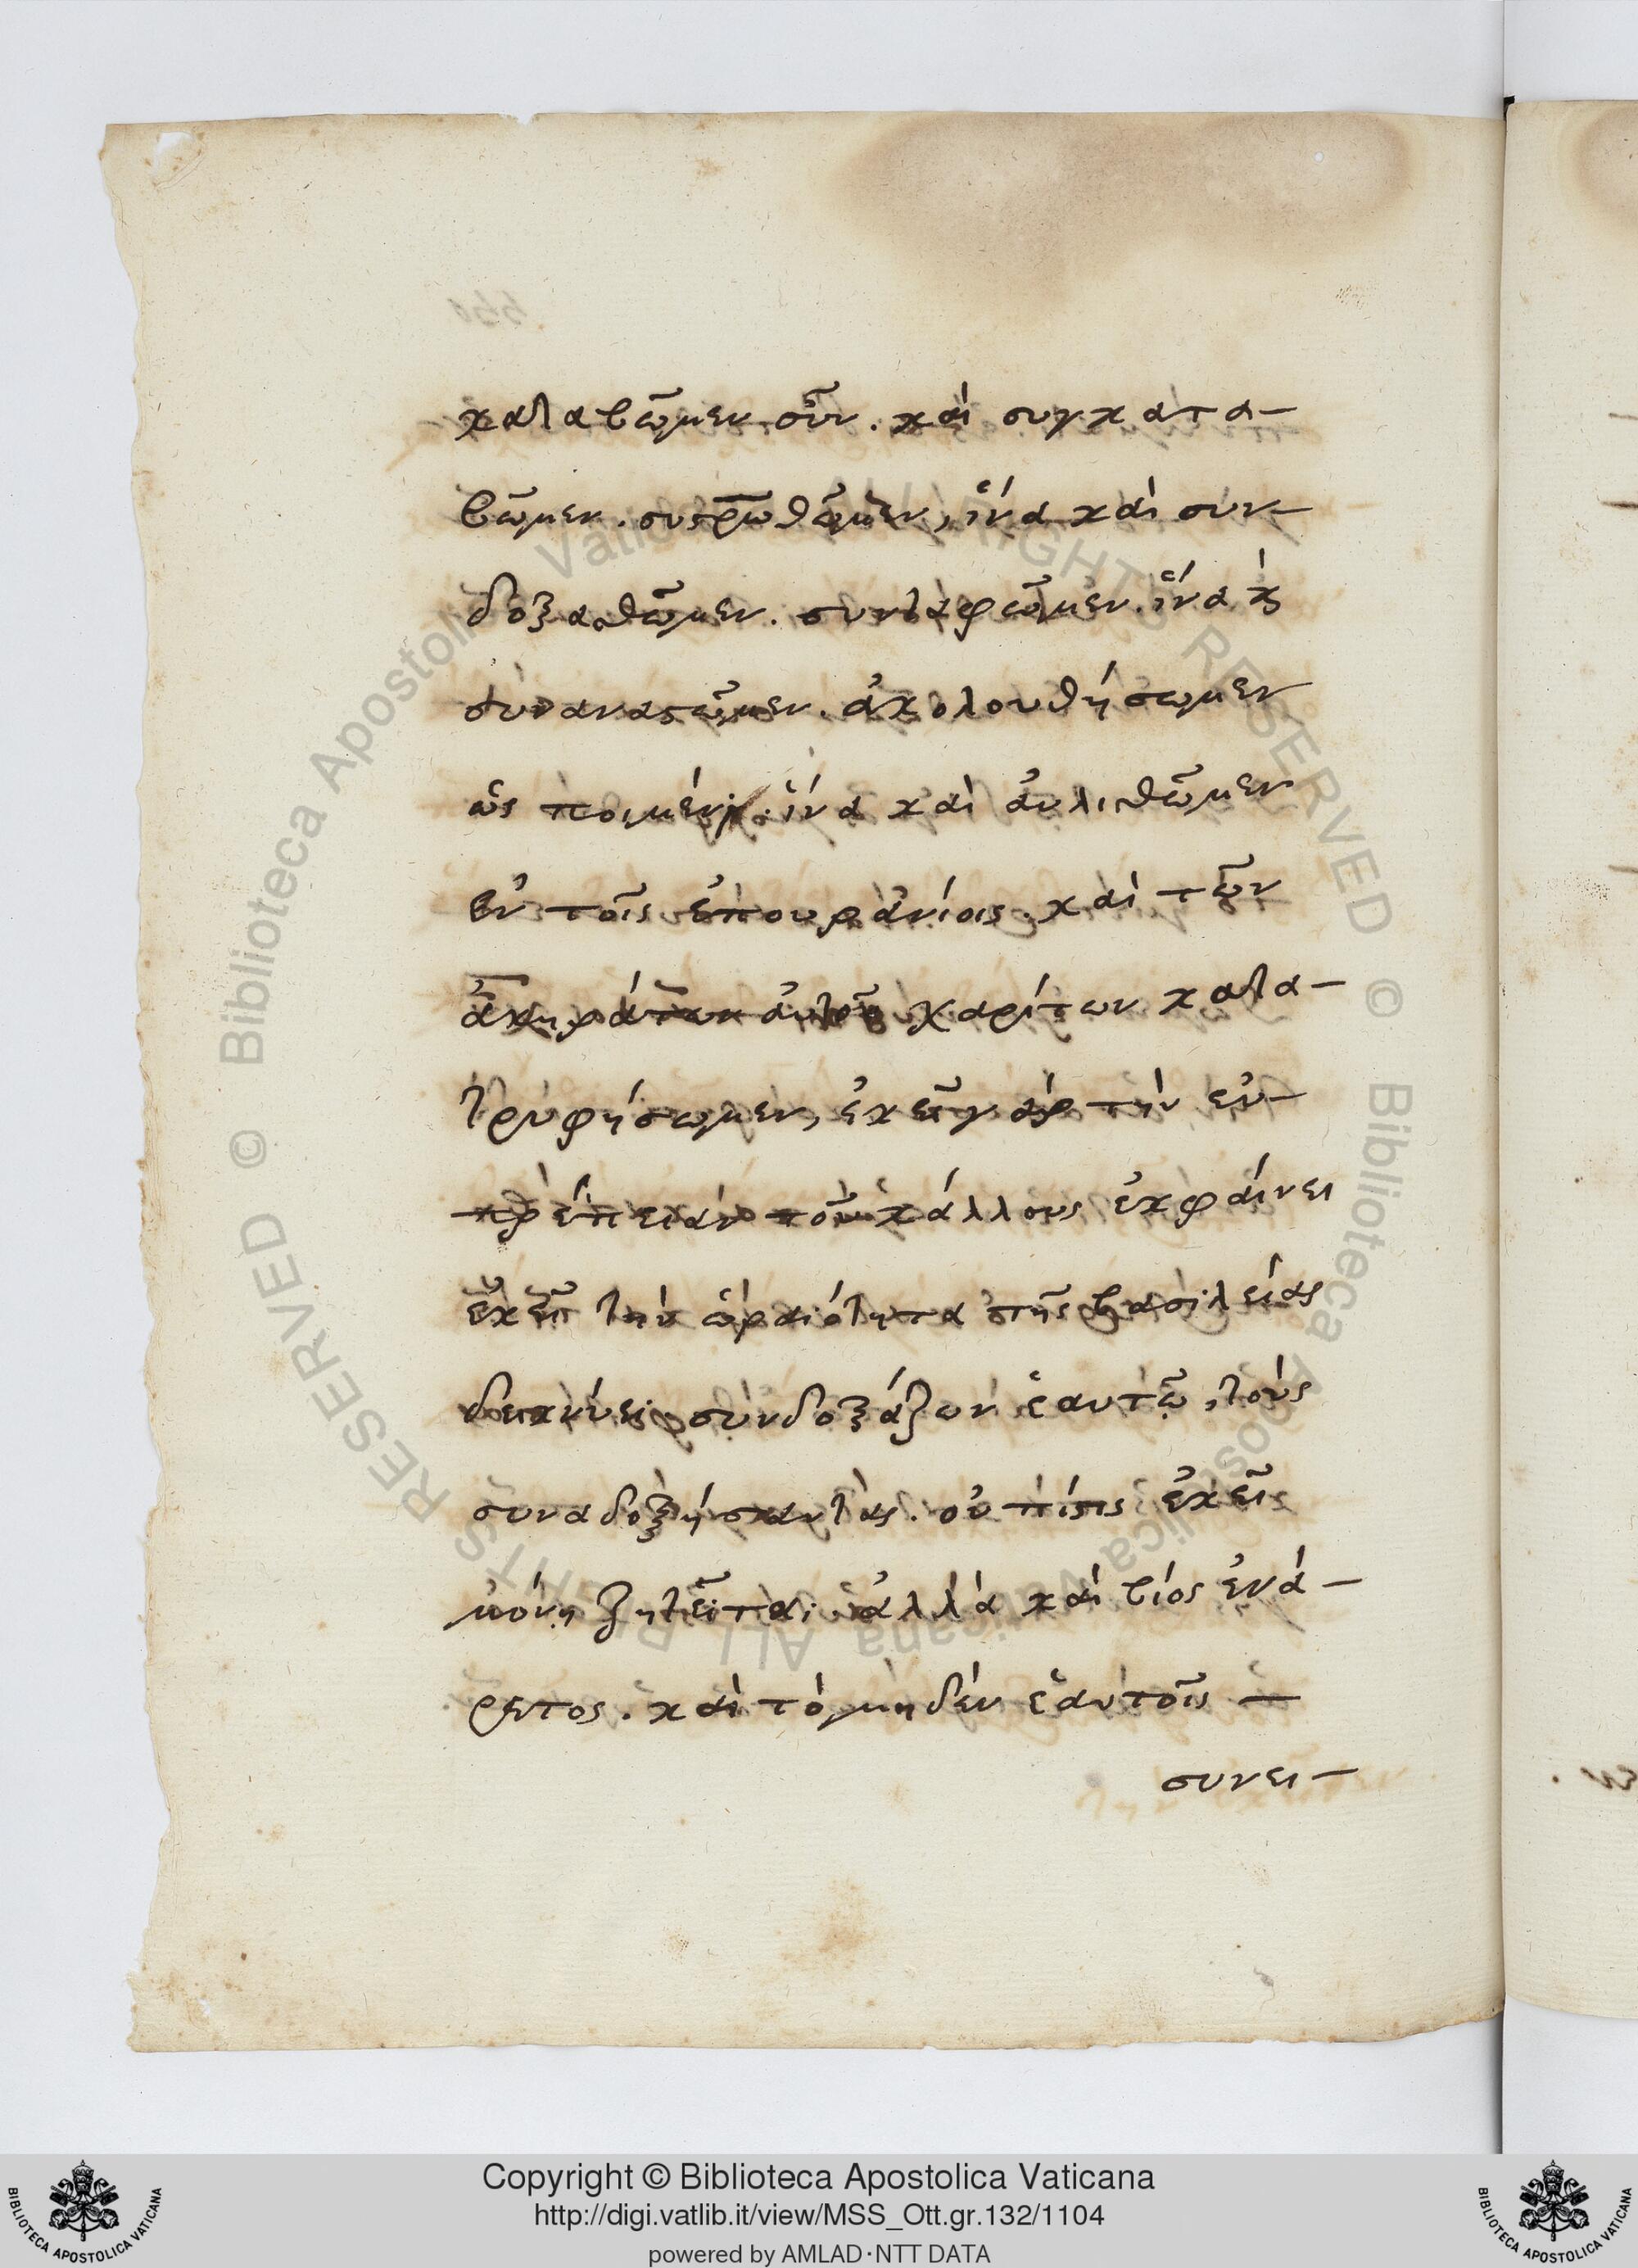 καταβῶμεν οὖν. καὶ συγκατα-
βῶμεν. συσρωθῶμεν, ἵνα καὶ συν-
δοξασθῶμεν. συνταφῶμεν. ἵνα κ
συναναστῶμεν. ἀκολουθήσωμεν
ὡς ποιμένι. ἵνα καὶ αὐλισθῶμεν
ἐν τοῖς ἐπουρανίοις. καὶ τῶν
ἀκηράτων αὐτοῦ χαρίτων κατα-
τρυφήσωμεν, ἐκεῖ γὰρ τὴν εὐ-
πρέπειαν τοῦ κάλλους ἐκφαίνει
ἐκεῖ τὴν ὡραιότητα τῆς βασιλείας
δεικνύει συνδοξάζων ἑαυτῷ, τοὺς
συναδοξήσαντας. οὐ πίστις ἐκεῖ
μόνη ζητεῖται. ἀλλὰ καὶ βίος ἐνά-
ρετος. καὶ τὸ μηδὲν ἑαυτοῖς
συνει-
Copyright © Biblioteca Apostolica Vaticana
http://digi.vatlib.it/view/MSS_Ott.gr.132/1104
powered by AMLAD·NTT DATA
BIBLIOTECA APOSTOLICA VATICANA
BIBLIOTECA APOSTOLICA VATICANA